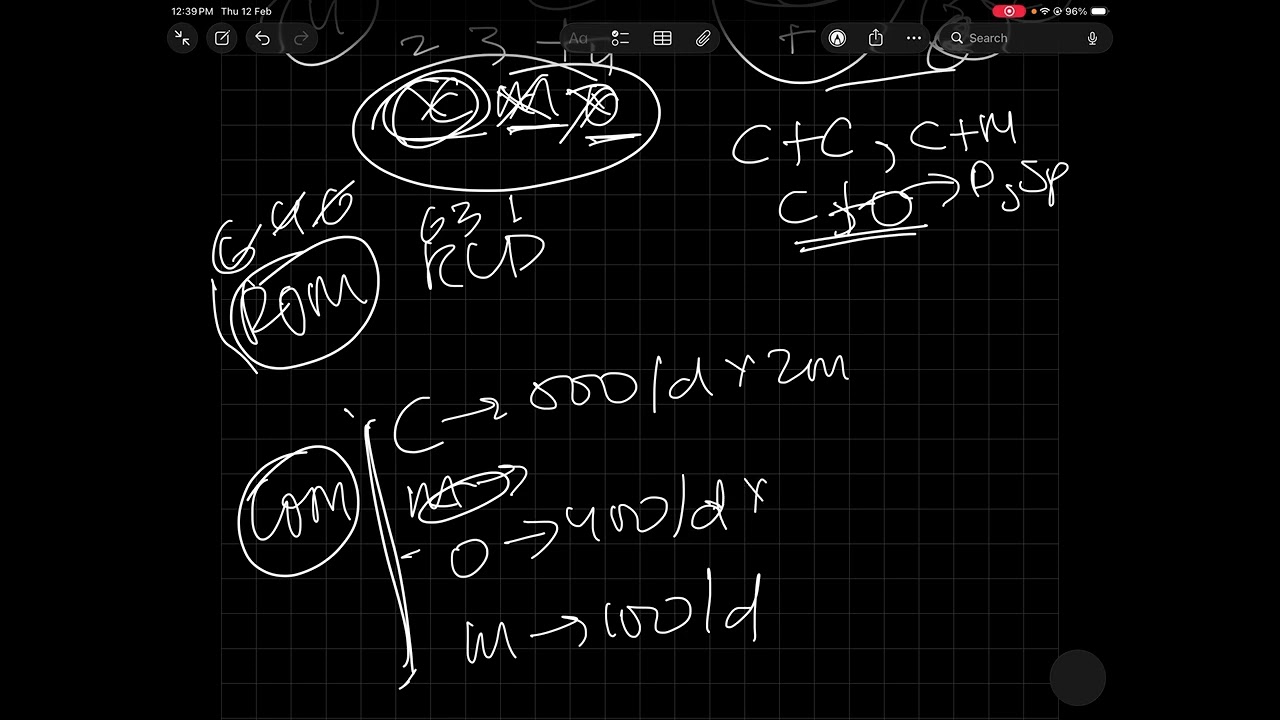 12:39 PM Thu 12 Feb
96%
Aa
Search
2 3 4
C M O
C+C, C+M
C+O → P, Sp
6 4 0
6 3 1
ROM
RCD
C → 800/d x 2m
COM
M →
O → 400/d x
M → 100/d